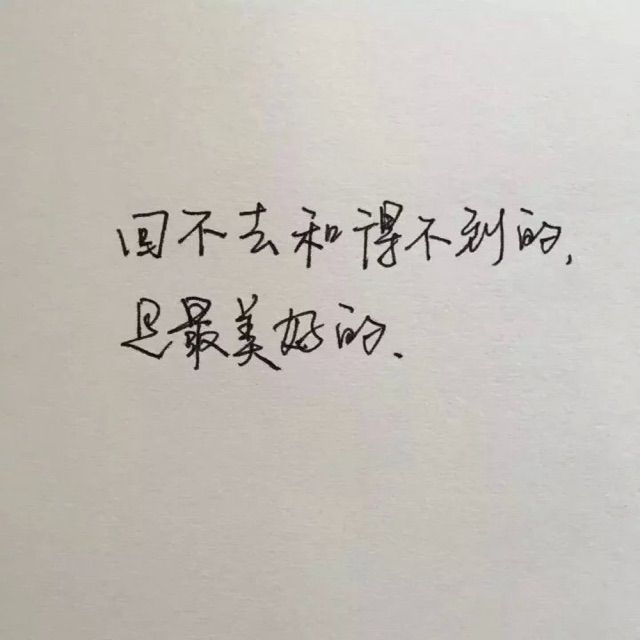 回不去和得不到的,
是最美好的、